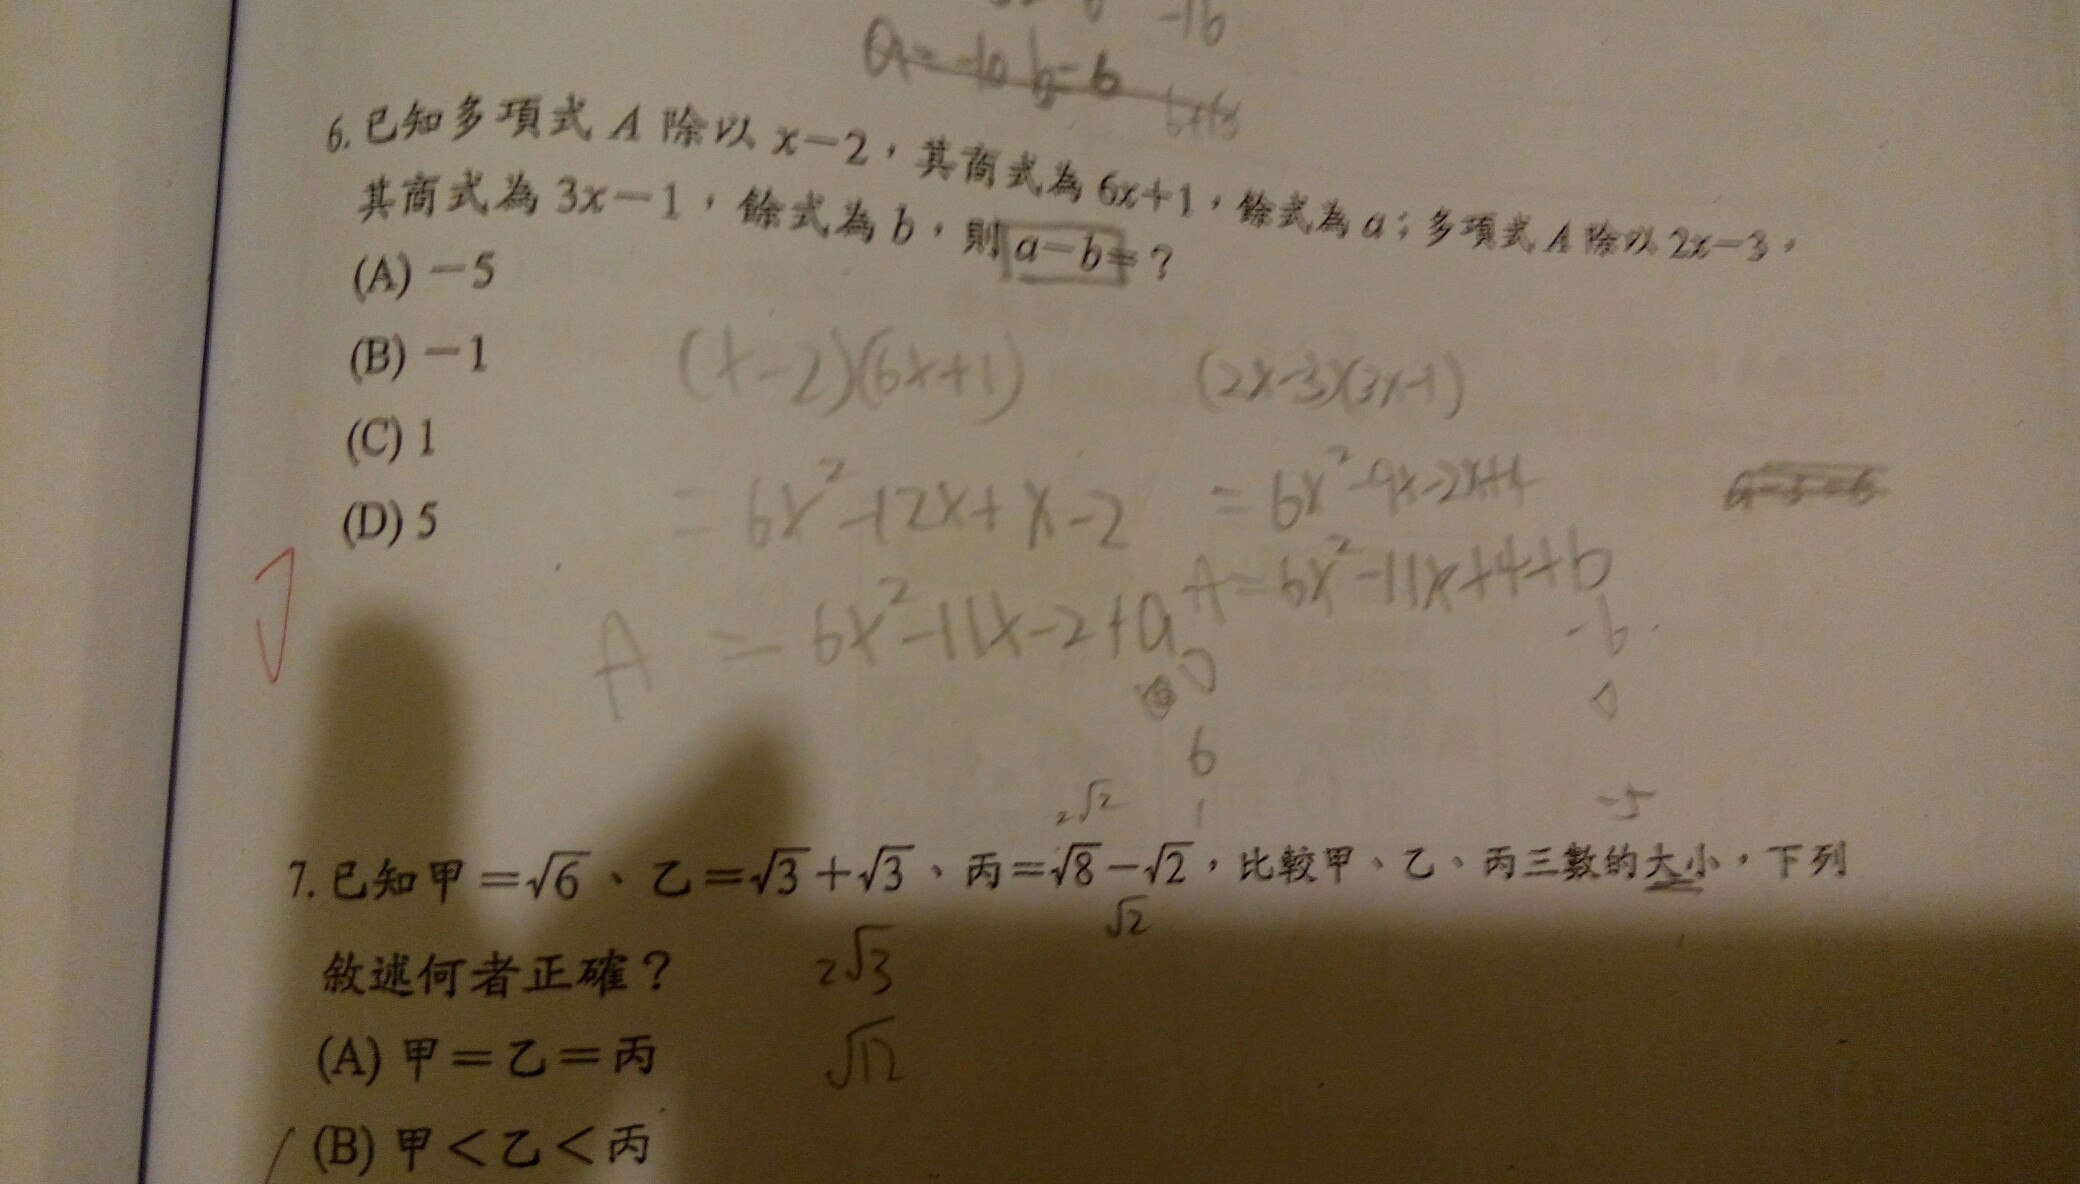 -16
a=-10 b=6
6.已知多項式 A 除以 x－2，其商式為 6x＋1，餘式為 a；多項式 A 除以 2x－3，
其商式為 3x－1，餘式為 b，則 a－b＝？
(A)－5
(B)－1
(C) 1
(D) 5
(x-2)(6x+1) (2x-3)(3x-1)
=6x²-12x+x-2 =6x²-9x-2x+4
A=6x²-11x-2+a A=6x²-11x+4+b
0 -6
6 0
1 -5
2√2
7.已知甲＝√6、乙＝√3＋√3、丙＝√8－√2，比較甲、乙、丙三數的大小，下列
√2
敘述何者正確？ 2√3
(A) 甲＝乙＝丙 √12
(B) 甲＜乙＜丙